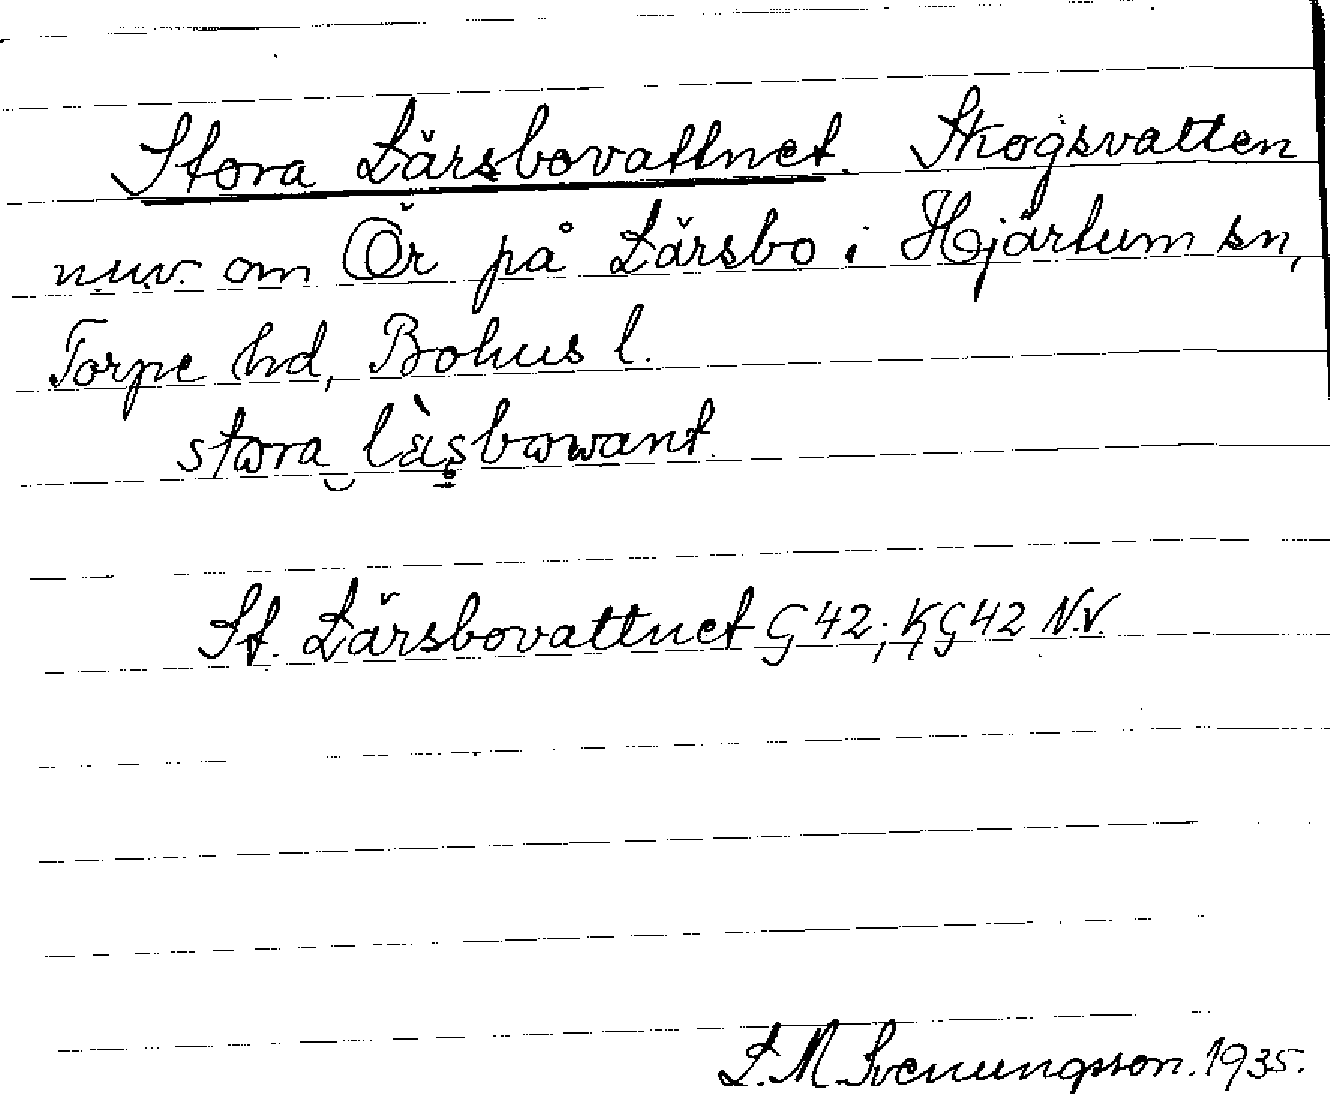 Stora Lärsbovattnet. Skogsvatten
n.u.v. om Ör på Lärsbo i Hjärtum sn,
Torpe hd, Bohus l.
St. Lärsbovattnet G 42; KG 42 N.V.
L. M. Svenungsson. 1935.